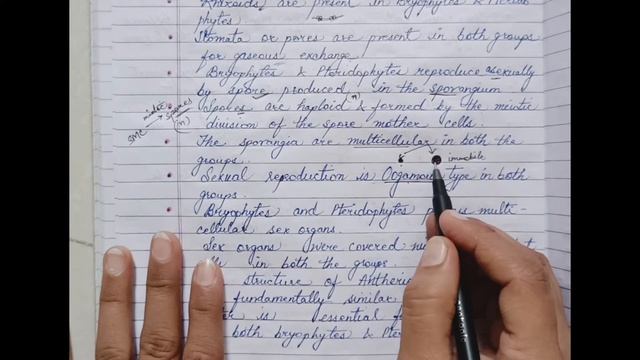 Rhizoids are present in Bryophytes &
phytes
Stomata or pores are present in both groups
for gaseous exchange
Bryophytes & Pteridophytes reproduce asexually
by spore produced in the sporangium
Spores are haploid (n) & formed by the meiotic
division of the spore mother cells.
SMC meiosis spores (n)
The sporangia are multicellular in both the
groups.
immobile
Sexual reproduction is Oogamous type in both
groups.
Bryophytes and Pteridophytes multi-
cellular sex organs.
Sex organs were covered
in both the groups.
structure of
fundamentally similar
is essential
both bryophytes &